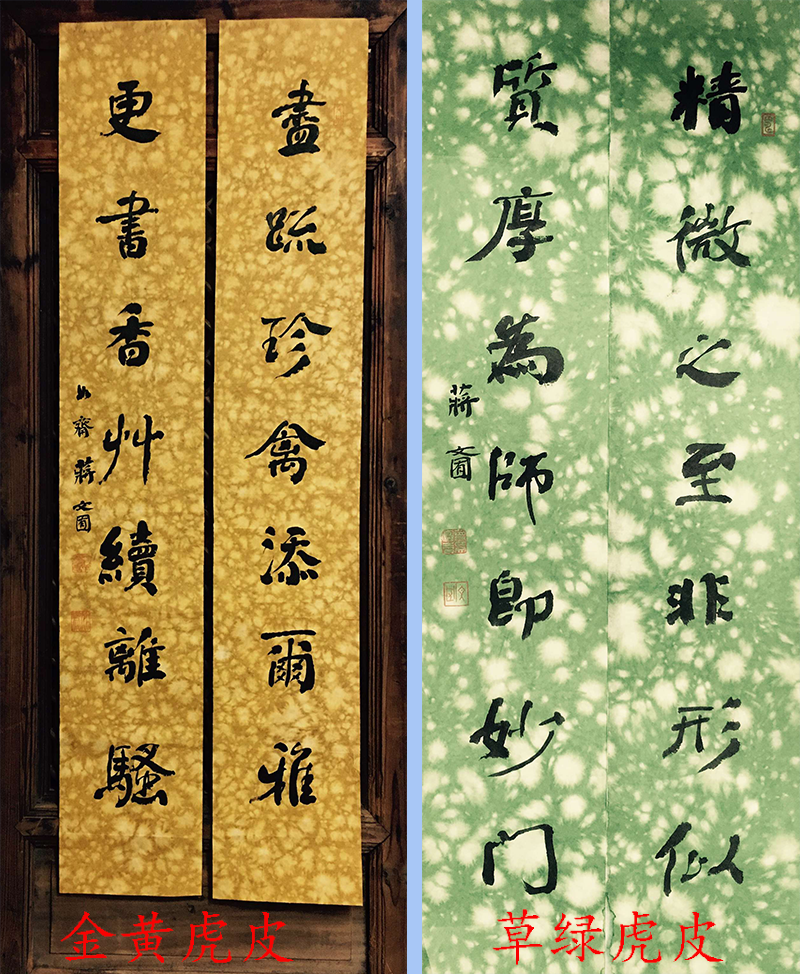 盡疏珍禽添爾雅
更書香艸續離騷
公齊蔣文圖
精微之至非形似
質厚為師即妙门
蔣文圖
金黄虎皮
草绿虎皮